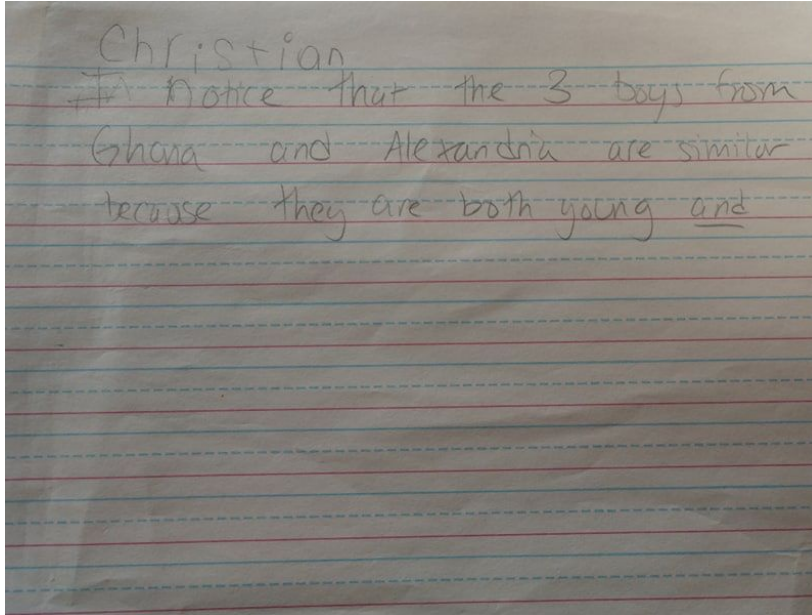 Christian
I notice that the 3 boys from
Ghana and Alexandria are similar
because they are both young and